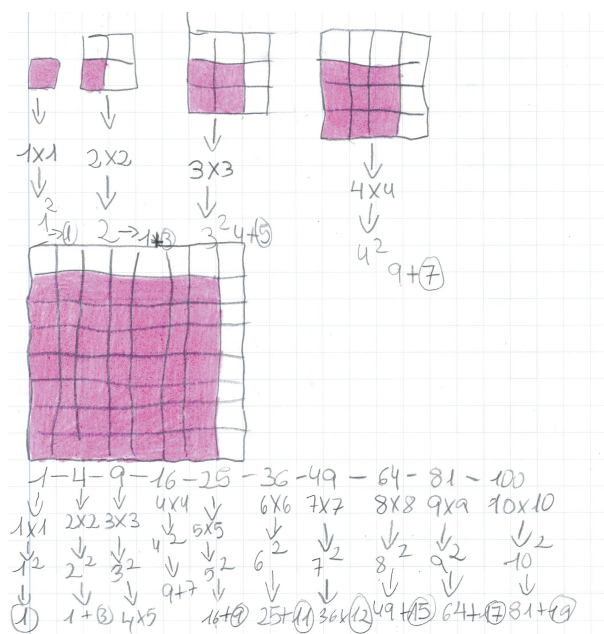 1x1 2x2 3x3 4x4
1² → 1 2 → 1+3 3² 4+5 4² 9+7
1 - 4 - 9 - 16 - 25 - 36 - 49 - 64 - 81 - 100
1x1 2x2 3x3 4x4 5x5 6x6 7x7 8x8 9x9 10x10
1² 2² 3² 4² 5² 6² 7² 8² 9² 10²
1 1+3 4x5 9+7 16+9 25+11 36x12 49+15 64+17 81+19